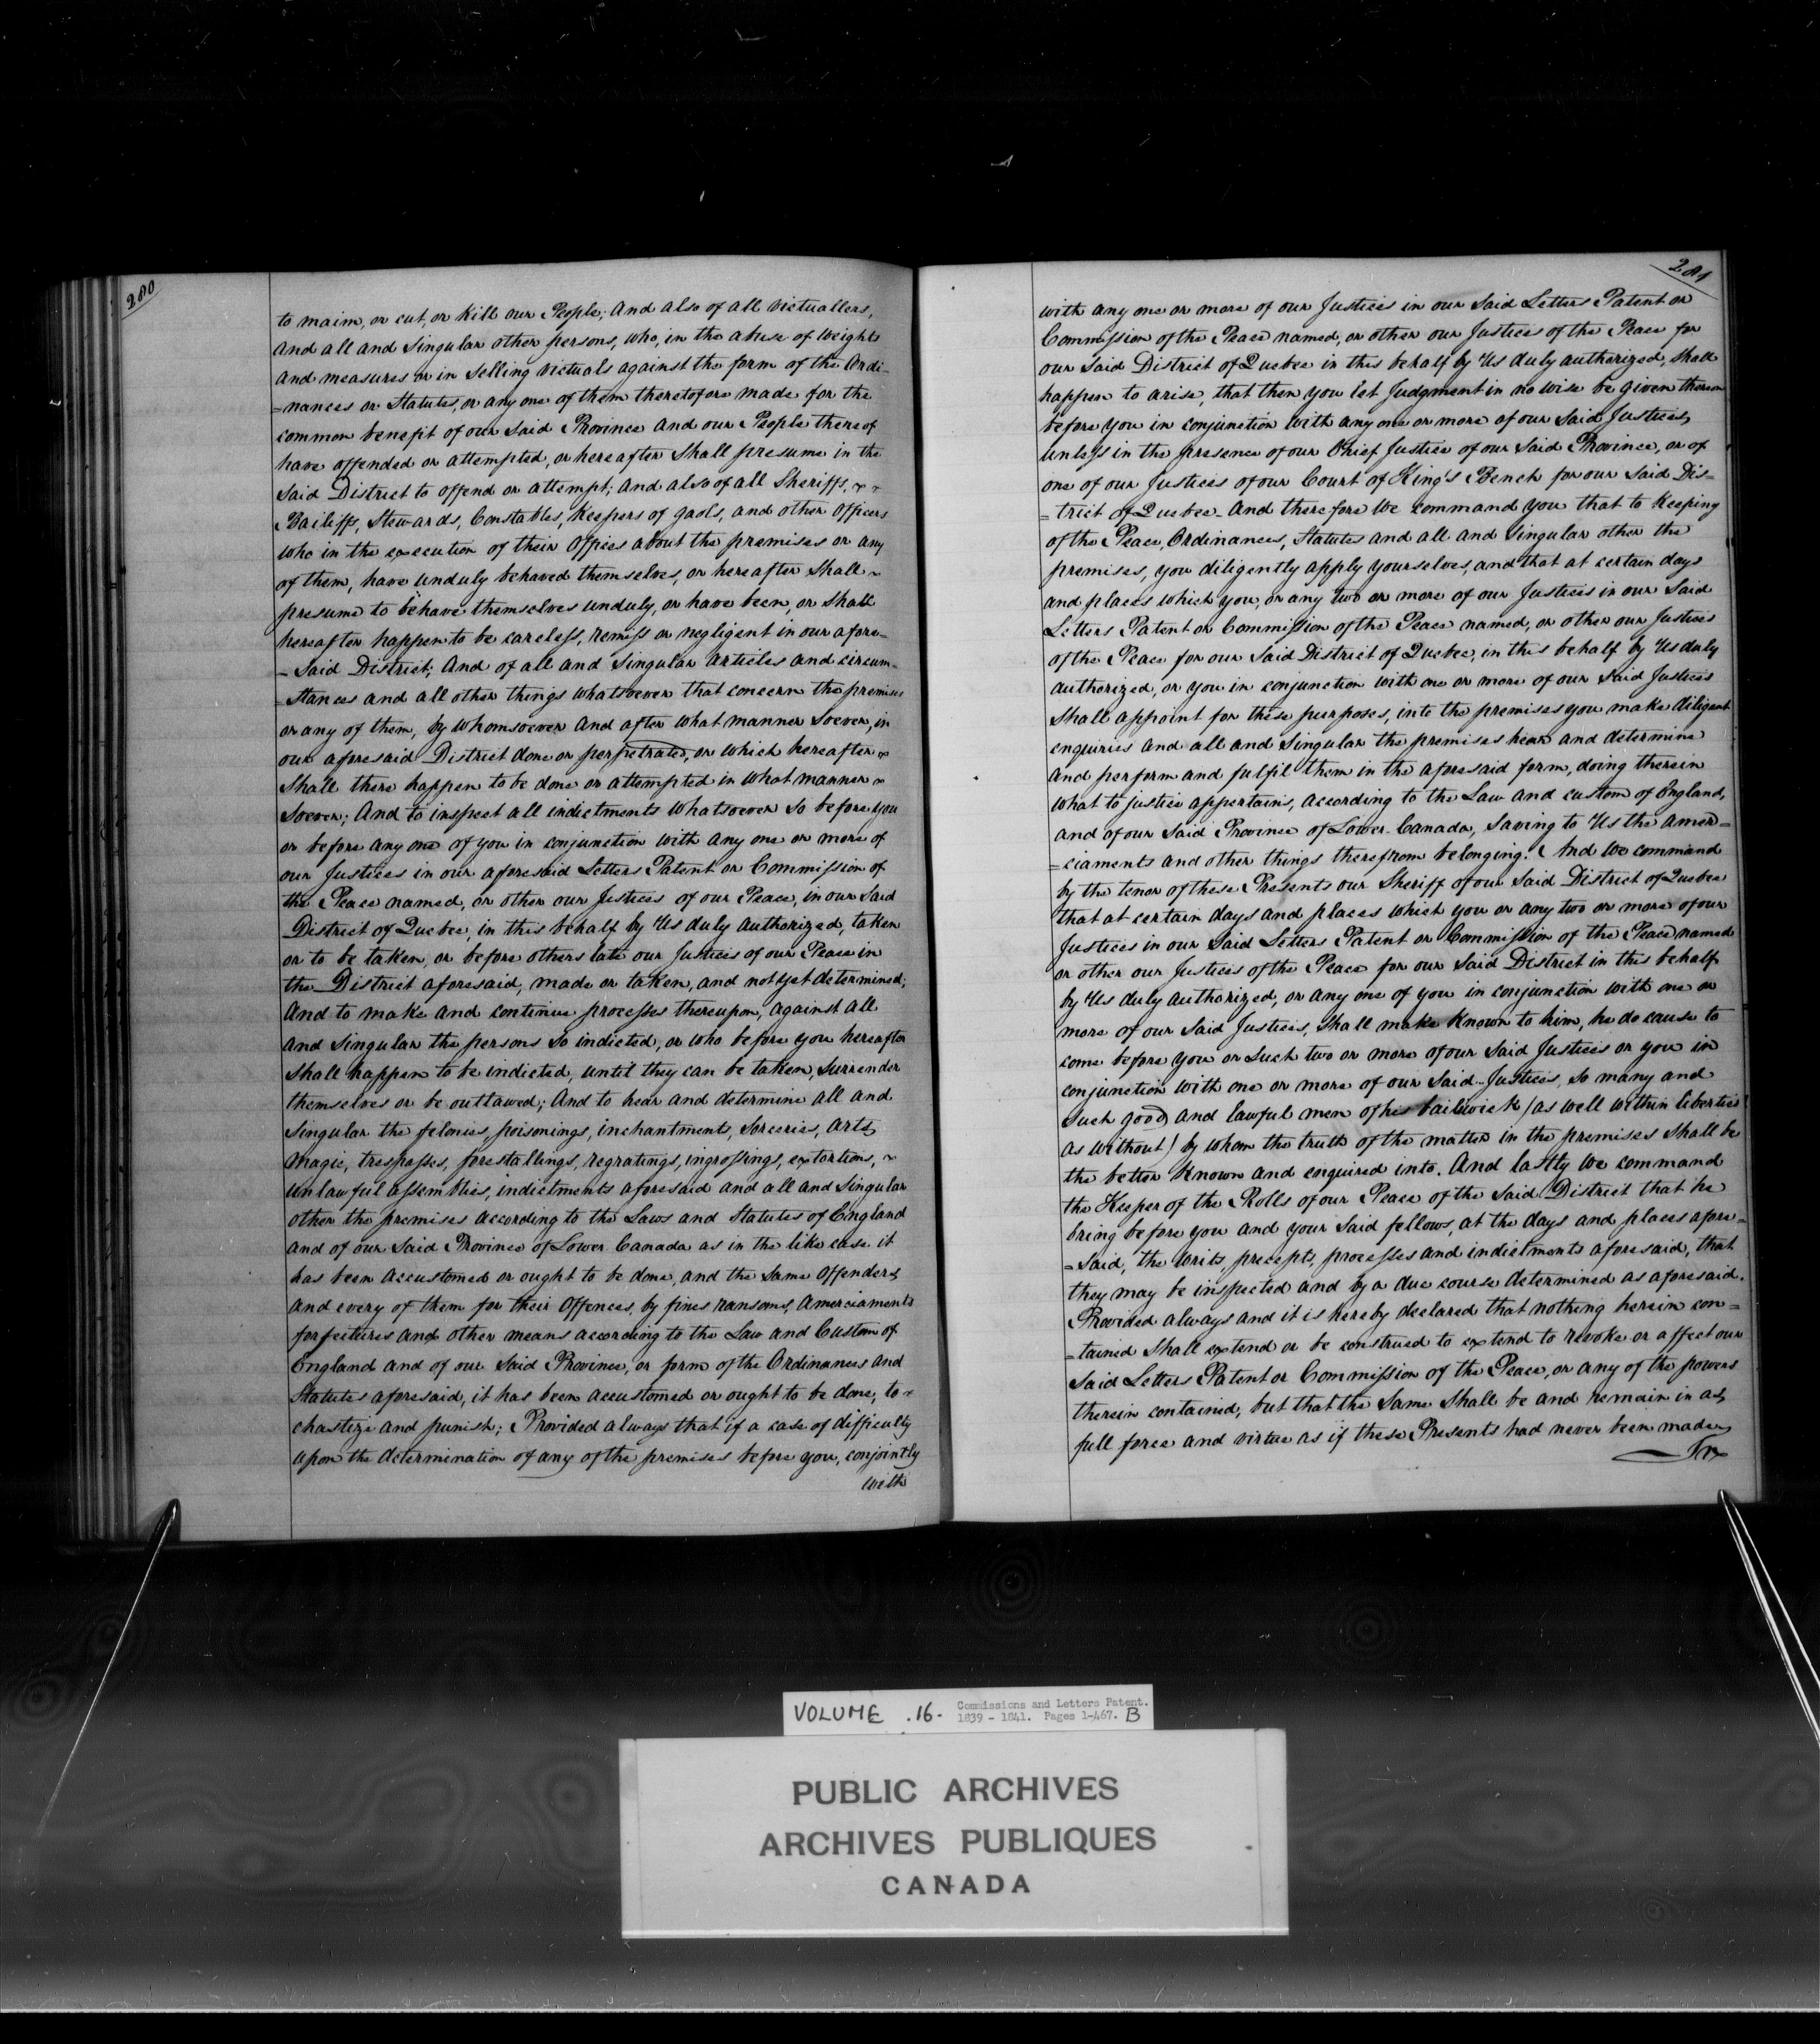 280
to maim, or cut, or kill our People; And also of all victuallers,
And all and Singular other persons, who, in the abuse of Weights
And measures or in Selling victuals against the form of the Ordi-
=nances or Statutes, or any one of them theretofore made for the
common benefit of our Said Province and our People thereof
have offended or attempted, or hereafter Shall presume in the
Said District to offend or attempt; And also of all Sheriffs,
Bailiffs, Stewards, Constables, Keepers of gaols, and other Officers
who in the execution of their Offices about the premises or any
of them, have unduly behaved themselves, or hereafter Shall
presume to behave themselves unduly, or have been, or Shall
hereafter happen to be careless, remiss or negligent in our afore-
-Said District; And of all and Singular articles and circum-
-stances and all other things whatsoever that concern the premises
or any of them, by Whomsoever And after what manner Soever, in
our aforesaid District done or perpetrated, or which hereafter
Shall there happen to be done or attempted in what manner
Soever; And to inspect all indictments whatsoever So before you
or before any one of you in conjunction with any one or more of
our Justices in our aforesaid Letters Patent or Commission of
the Peace named, or other our Justices of our Peace, in our Said
District of Quebec, in this behalf by Us duly authorized, taken
or to be taken, or before others late our Justices of our Peace in
the District aforesaid, made or taken, and not yet determined;
And to make and continue processes thereupon, against all
and Singular the persons So indicted, or who before you hereafter
Shall happen to be indicted, until they can be taken, Surrender
themselves or be outlawed; And to hear and determine all and
Singular the felonies, poisonings, inchantments, Sorceries, Arts
Magic, trespasses, forestallings, regratings, ingrossings, extortions,
unlawful Assemblies, indictments aforesaid and all and Singular
other the premises according to the Laws and Statutes of England
and of our Said Province of Lower Canada as in the like case it
has been accustomed or ought to be done, and the Same Offenders
and every of them for their Offences, by fines ransoms, Amerciaments
forfeitures and other means according to the Law and Custom of
England and of our Said Province, or form of the Ordinances and
Statutes aforesaid, it has been accustomed or ought to be done, to
chastize and punish; Provided always that if a case of difficulty
upon the determination of any of the premises before you, conjointly
with
281
with any one or more of our Justices in our Said Letters Patent or
Commission of the Peace named, or other our Justices of the Peace for
our Said District of Quebec in this behalf by Us duly authorized, Shall
happen to arise, that then you let Judgment in no wise be given thereon
before you in conjunction with any one or more of our Said Justices,
unless in the presence of our Chief Justice of our Said Province, or of
one of our Justices of our Court of King's Bench for our Said Dis-
=trict of Quebec And therefore We command you that to Keeping
of the Peace, Ordinances, Statutes and all and Singular other the
premises, you diligently apply yourselves, and that at certain days
and places which you, or any two or more of our Justices in our Said
Letters Patent or Commission of the Peace named, or other our Justices
of the Peace for our Said District of Quebec, in this behalf by Us duly
authorized, or you in conjunction with one or more of our Said Justices
Shall appoint for these purposes, into the premises you make diligent
enquiries and all and Singular the premises hear and determine
and perform and fulfil them in the aforesaid form, doing therein
what to justice appertains, according to the Law and custom of England,
and of our Said Province of Lower Canada, Saving to Us the Amer=
=ciaments and other things therefrom belonging. And We command
by the tenor of these Presents our Sheriff of our Said District of Quebec
that at certain days and places which you or any two or more of our
Justices in our Said Letters Patent or Commission of the Peace named
or other our Justices of the Peace for our Said District in this behalf
by Us duly authorized, or any one of you in conjunction with one or
more of our Said Justices, Shall make Known to him, he do cause to
come before you or Such two or more of our Said Justices or you in
conjunction with one or more of our Said Justices, So many and
Such good and lawful men of his bailiwick (as well within liberties
as without) by whom the truth of the matter in the premises Shall be
the better Known and enquired into. And lastly We command
the Keeper of the Rolls of our Peace of the Said District that he
bring before you and your Said fellows, at the days and places afore=
=Said, the Writs, precepts, processes and indictments aforesaid, that
they may be inspected and by a due course determined as aforesaid.
Provided always and it is hereby declared that nothing herein con=
=tained Shall extend or be construed to extend to revoke or affect our
Said Letters Patent or Commission of the Peace, or any of the powers
therein contained, but that the Same Shall be and remain in as
full force and virtue as if these Presents had never been made
VOLUME .16. Commissions and Letters Patent.
1839 - 1841. Pages 1-467. B
PUBLIC ARCHIVES
ARCHIVES PUBLIQUES
CANADA